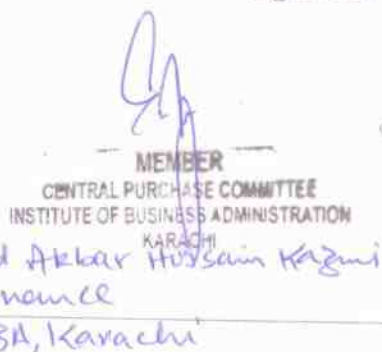 MEMBER
CENTRAL PURCHASE COMMITTEE
INSTITUTE OF BUSINESS ADMINISTRATION
KARACHI
d Akbar Hussain Kazmi
nance
BA, Karachi